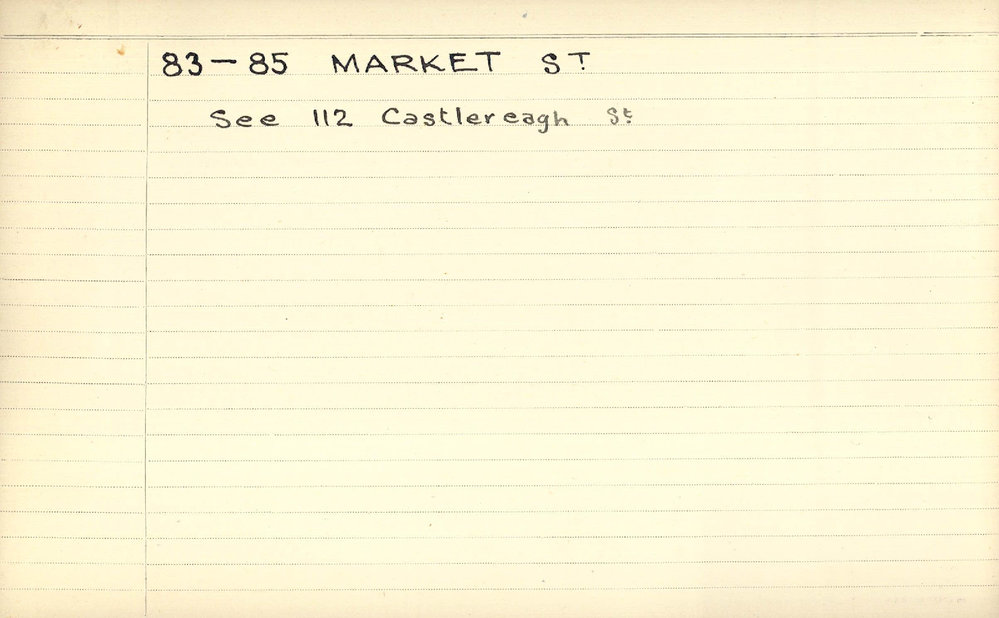 83-85 MARKET ST
See 112 Castlereagh St